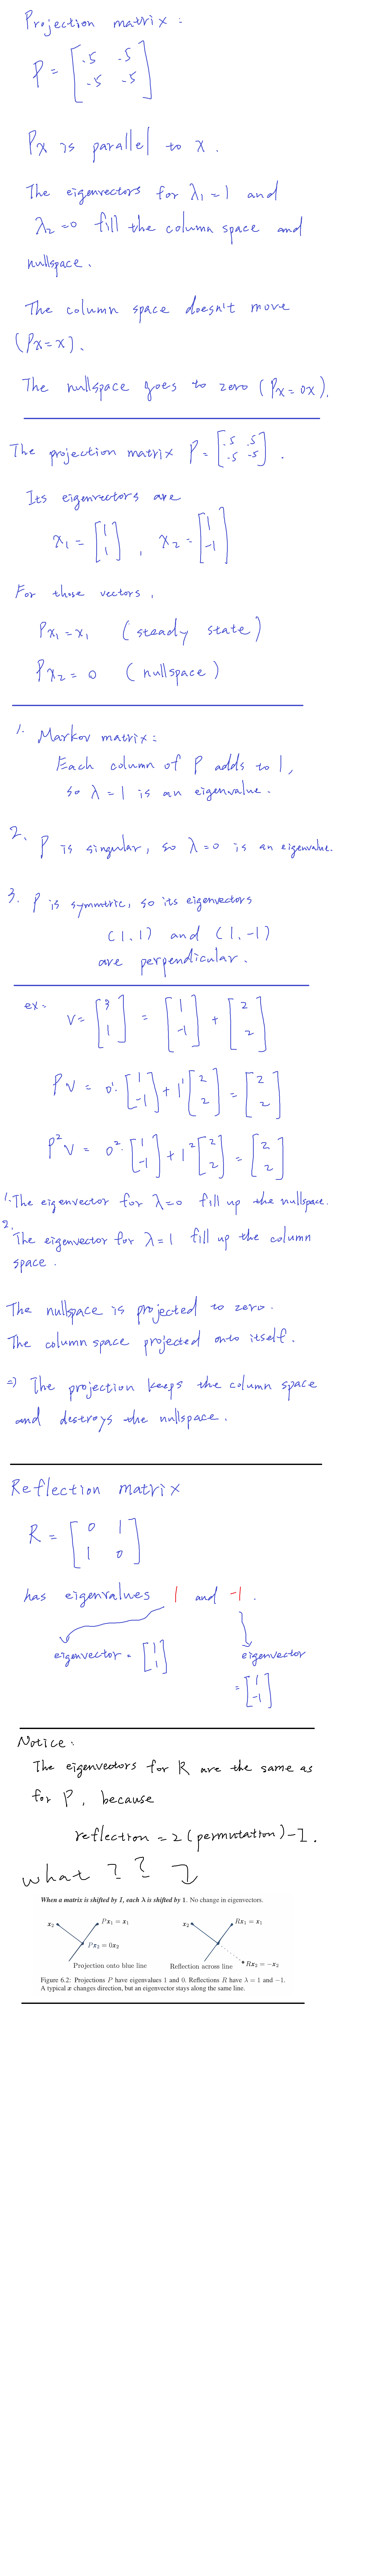 Projection matrix:
P = [ .5 .5
-.5 -.5 ]
Px is parallel to x.
The eigenvectors for λ1=1 and
λ2=0 fill the column space and
nullspace.
The column space doesn't move
(Px=x).
The nullspace goes to zero (Px=0x).
The projection matrix P= [ .5 .5
-.5 -.5 ].
Its eigenvectors are
x1 = [ 1
1 ] , x2 = [ 1
-1 ]
For those vectors,
Px1=x1 (steady state)
Px2=0 (nullspace)
1. Markov matrix:
Each column of P adds to 1,
so λ=1 is an eigenvalue.
2. P is singular, so λ=0 is an eigenvalue.
3. P is symmetric, so its eigenvectors
(1,1) and (1,-1)
are perpendicular.
ex. V= [ 3
1 ] = [ 1
-1 ] + [ 2
2 ]
PV = 0¹·[ 1
-1 ] + 1¹[ 2
2 ] = [ 2
2 ]
P²V = 0²·[ 1
-1 ] + 1²[ 2
2 ] = [ 2
2 ]
1. The eigenvector for λ=0 fill up the nullspace.
2. The eigenvector for λ=1 fill up the column
space.
The nullspace is projected to zero.
The column space projected onto itself.
=> The projection keeps the column space
and destroys the nullspace.
Reflection matrix
R = [ 0 1
1 0 ]
has eigenvalues 1 and -1.
eigenvector = [ 1
1 ]
eigenvector
= [ 1
-1 ]
Notice:
The eigenvectors for R are the same as
for P, because
reflection = 2(permutation)-I.
what ? ?
When a matrix is shifted by I, each λ is shifted by 1. No change in eigenvectors.
x2 Px1 = x1
Px2 = 0x2
Projection onto blue line
x2 Rx1 = x1
Rx2 = −x2
Reflection across line
Figure 6.2: Projections P have eigenvalues 1 and 0. Reflections R have λ = 1 and −1.
A typical x changes direction, but an eigenvector stays along the same line.